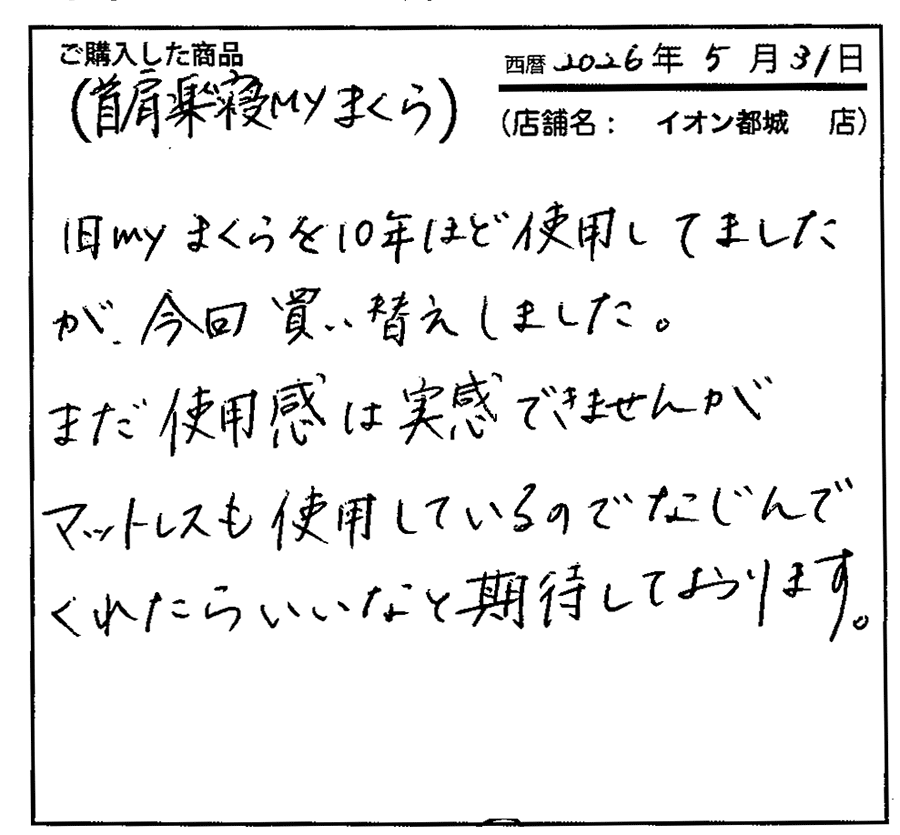 ご購入した商品
西暦 2026年 5月31日
(首肩楽寝MYまくら)
(店舗名： イオン都城 店)
旧myまくらを10年ほど使用してました
が、今回買い替えしました。
まだ使用感は実感できませんが
マットレスも使用しているのでなじんで
くれたらいいなと期待しております。